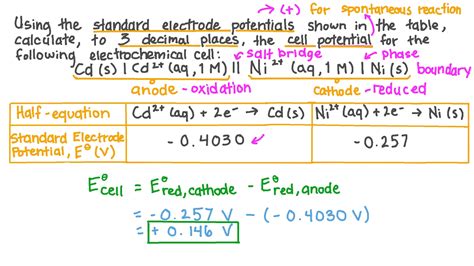 → (+) for spontaneous reaction
Using the standard electrode potentials shown in the table,
calculate, to 3 decimal places, the cell potential for the
following electrochemical cell: salt bridge phase
Cd (s) | Cd²⁺ (aq, 1 M) || Ni²⁺ (aq, 1 M) | Ni (s) boundary
anode - oxidation cathode - reduced
Half-equation Cd²⁺ (aq) + 2e⁻ → Cd (s) Ni²⁺ (aq) + 2e⁻ → Ni (s)
Standard Electrode
Potential, E⁰ (V) - 0.4030 -0.257
E⁰cell = E⁰red, cathode - E⁰red, anode
= - 0.257 V - (- 0.4030 V)
= + 0.146 V